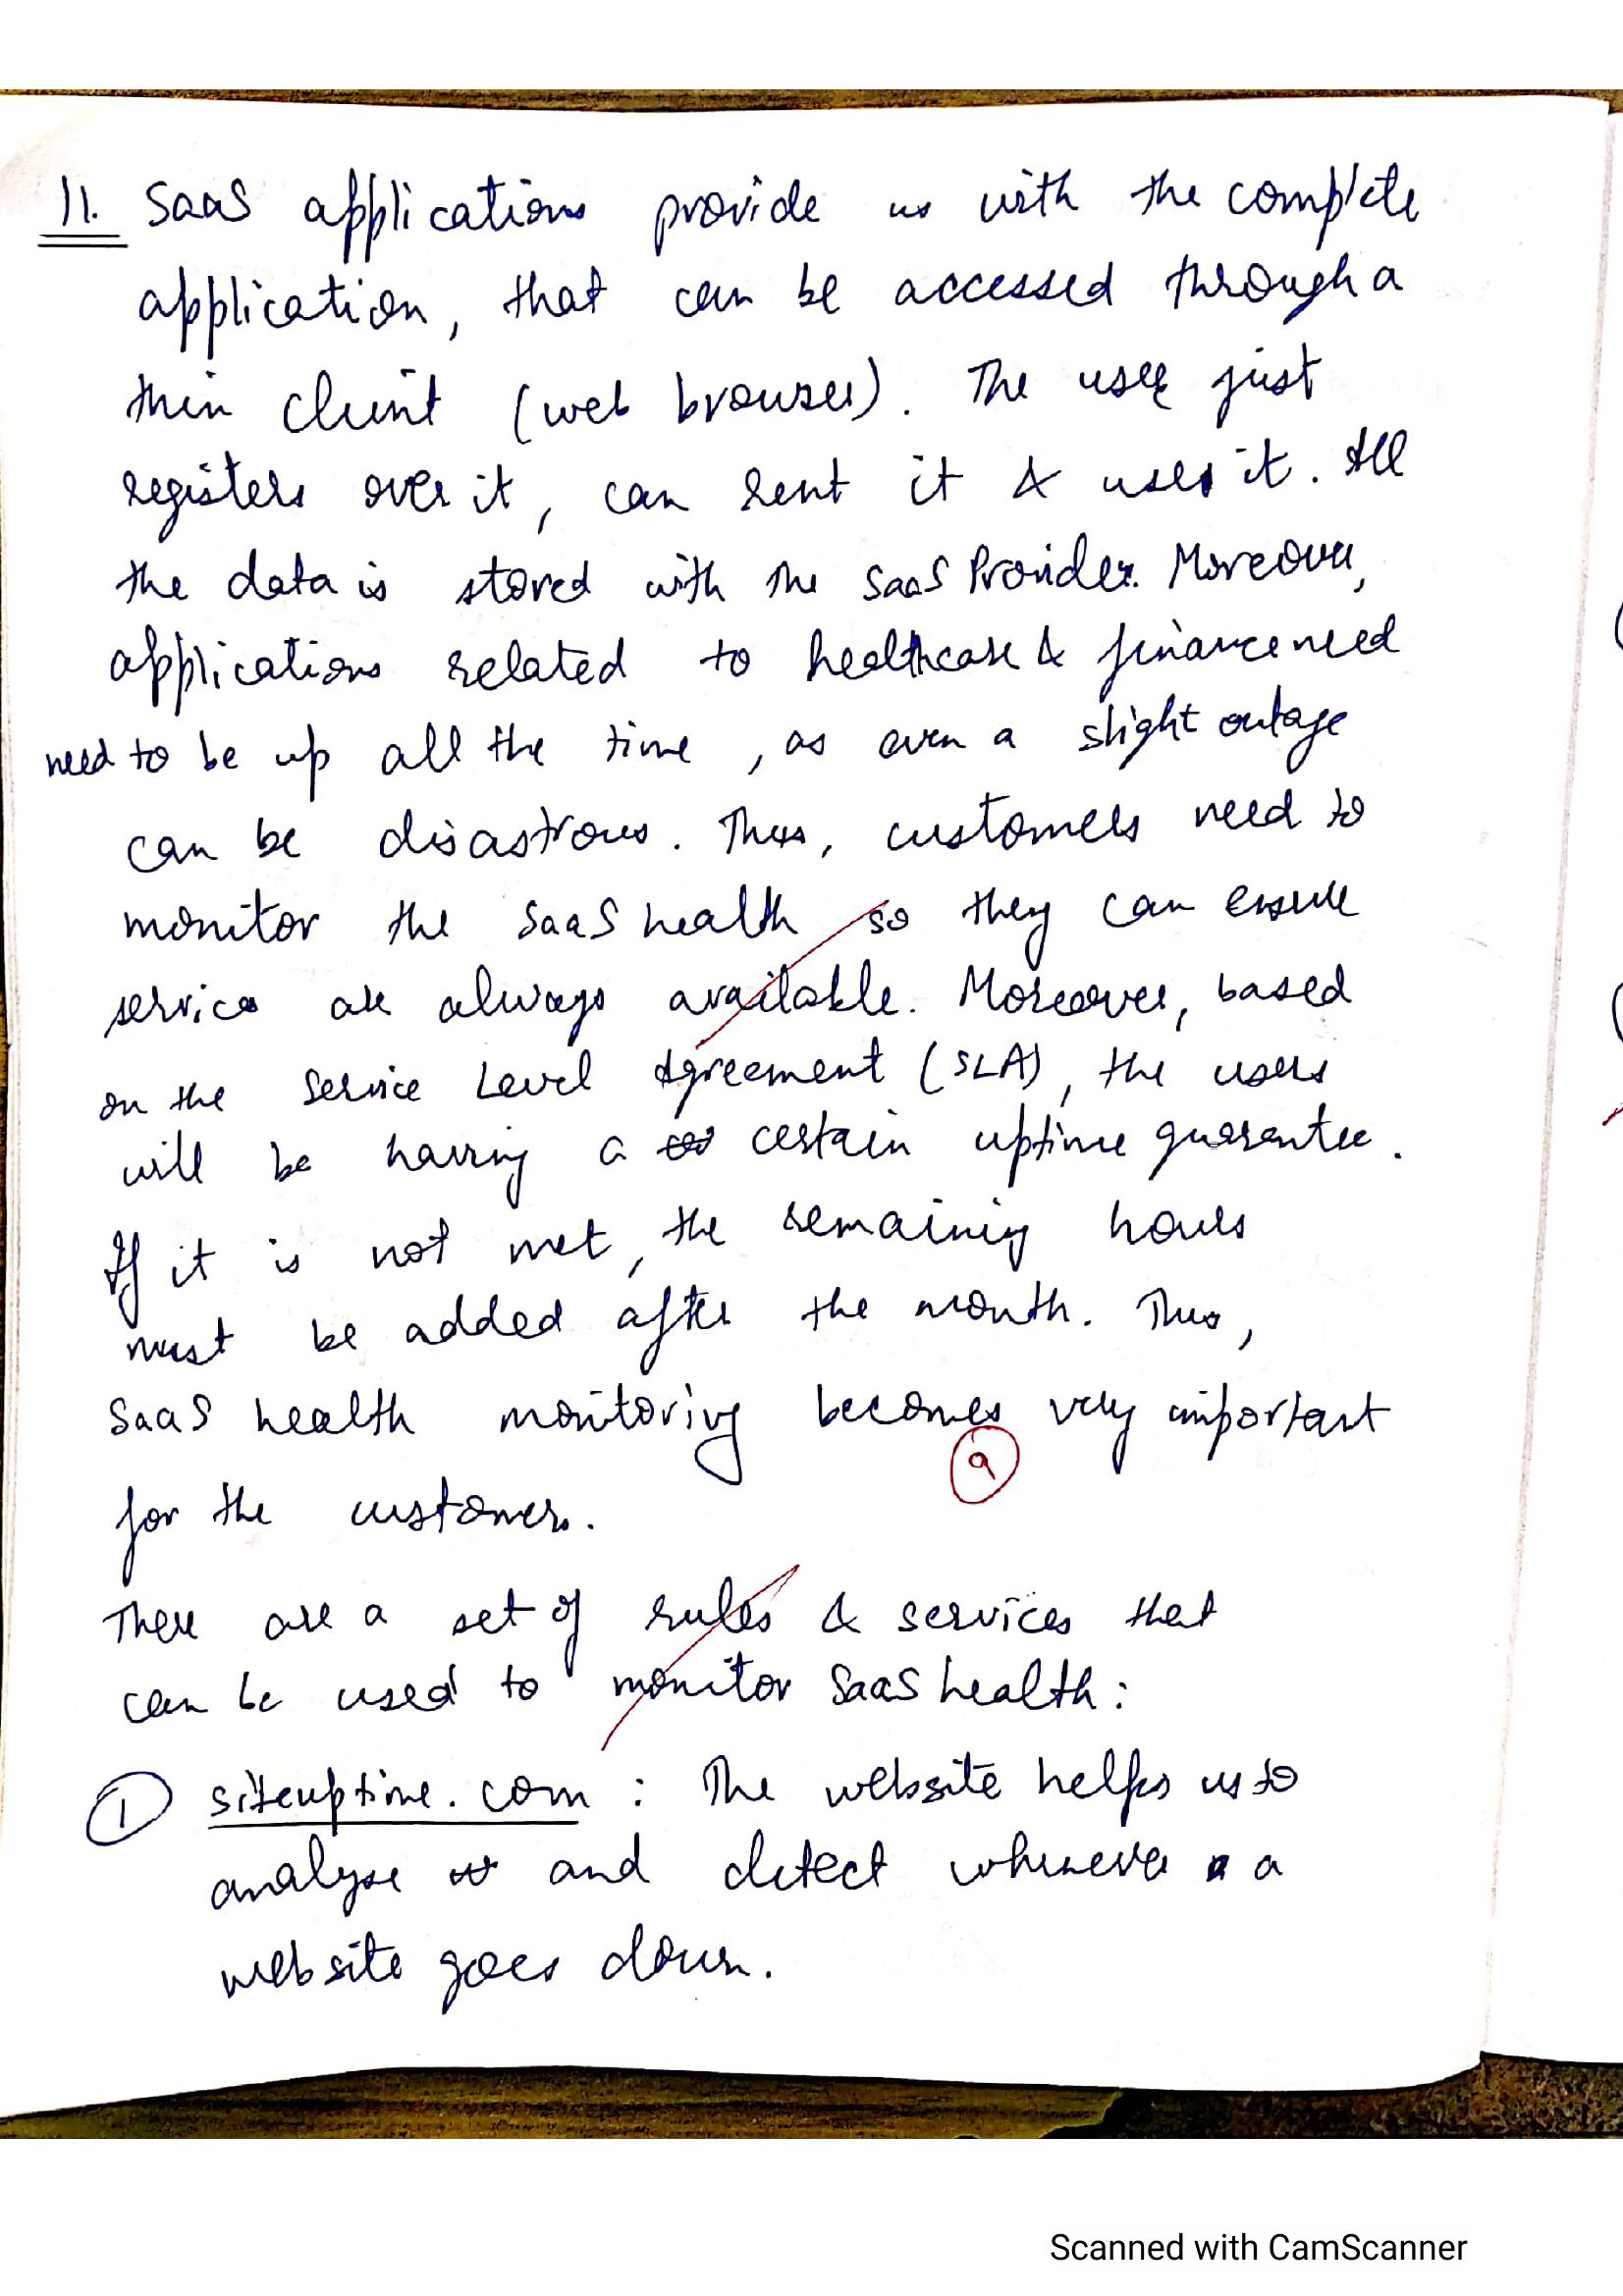 11. SaaS applications provide us with the complete
application, that can be accessed through a
thin client (web browser). The user just
registers over it, can rent it & uses it. All
the data is stored with the SaaS Provider. Moreover,
applications related to healthcare & finance need
need to be up all the time, as even a slight outage
can be disastrous. Thus, customers need to
monitor the SaaS health so they can ensure
services are always available. Moreover, based
on the Service Level Agreement (SLA), the users
will be having a certain uptime guarantee.
If it is not met, the remaining hours
must be added after the month. Thus,
SaaS health monitoring becomes very important
9
for the customers.
There are a set of rules & services that
can be used to monitor SaaS health:
1 siteuptime.com : The website helps us to
analyse and detect whenever a
website goes down.
Scanned with CamScanner